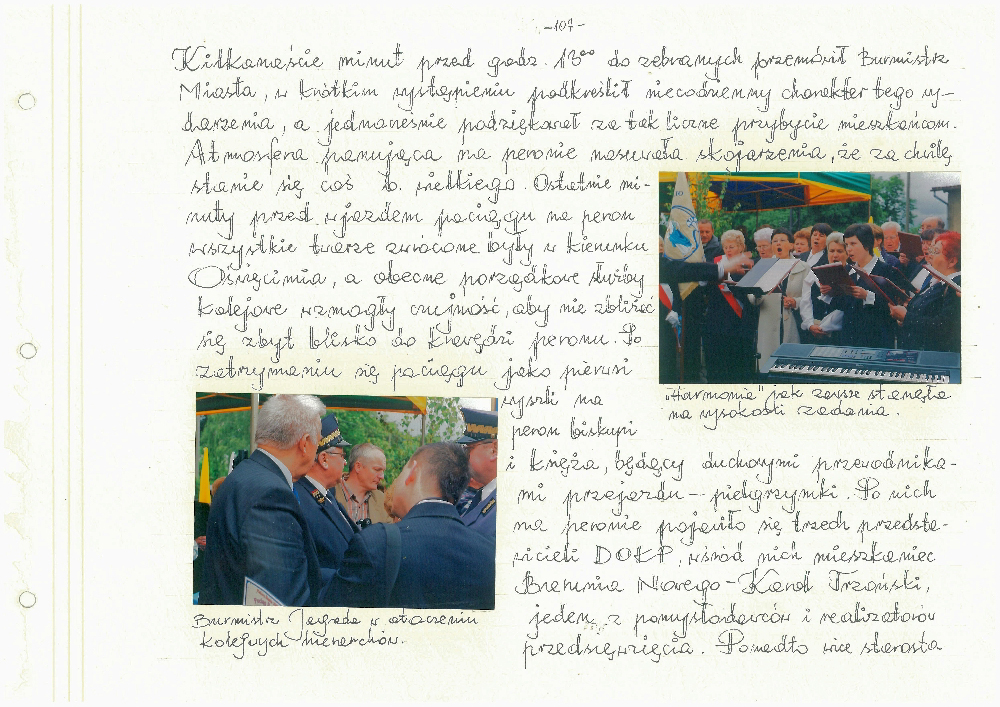 -107-
Kilkanaście minut przed godz. 13⁰⁰ do zebranych przemówił Burmistrz
Miasta, w krótkim wystąpieniu podkreślił niecodzienny charakter tego wy-
darzenia, a jednocześnie podziękował za tak liczne przybycie mieszkańcom.
Atmosfera panująca na peronie nasuwała skojarzenia, że za chwilę
stanie się coś b. wielkiego. Ostatnie mi-
nuty przed wjazdem pociągu na peron
wszystkie twarze zwrócone były w kierunku
Oświęcimia, a obecne porządkowe służby
kolejowe wzmogły czujność, aby nie zbliżać
się zbyt blisko do krawędzi peronu. Po
zatrzymaniu się pociągu jako pierwsi
wyszli na
peron biskupi
i księża, będący duchowymi przewodnika-
mi przejazdu - pielgrzymki. Po nich
na peronie pojawiło się trzech przedsta-
wicieli DOKP, wśród nich mieszkaniec
Bierunia Nowego - Karol Trzoński,
jeden z pomysłodawców i realizatorów
przedsięwzięcia. Ponadto wice starosta
"Harmonia" jak zawsze stanęła
na wysokości zadania.
Burmistrz Jagoda w otoczeniu
kolejowych hierarchów.